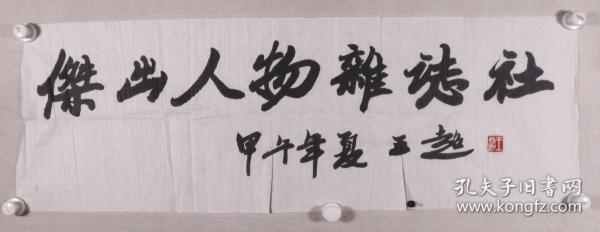 傑出人物雜誌社
甲午年夏 王超
孔夫子旧书网
www.kongfz.com